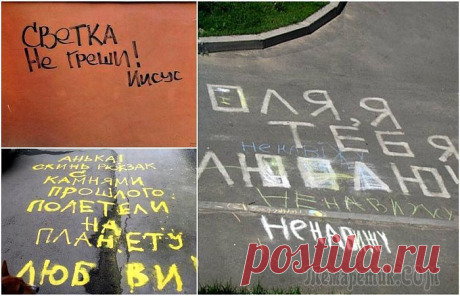 СВЕТКА
Не греши!
Иисус
АНЬКА!
СКИНЬ РЮКЗАК
С
КАМНЯМИ
ПРОШЛОГО.
ПОЛЕТЕЛИ
НА
ПЛАНЕТУ
ЛЮБВИ!
ОЛЯ, Я
ТЕБЯ
НЕНАВИЖУ
ЛЮБЛЮ!
НЕНАВИЖУ
НЕНАВИЖУ
postila.ru